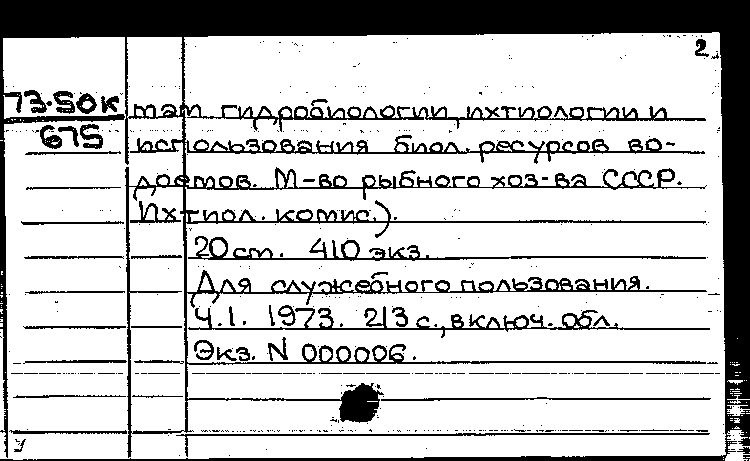 2
73-50к
675
тат гидробиологии, ихтиологии и
использования биол. ресурсов во-
доемов. М-во рыбного хоз-ва СССР.
Ихтиол. комис.).
20 cm. 410 экз.
Для служебного пользования.
Ч.1. 1973. 213 с., включ. обл.
Экз. N 000006.